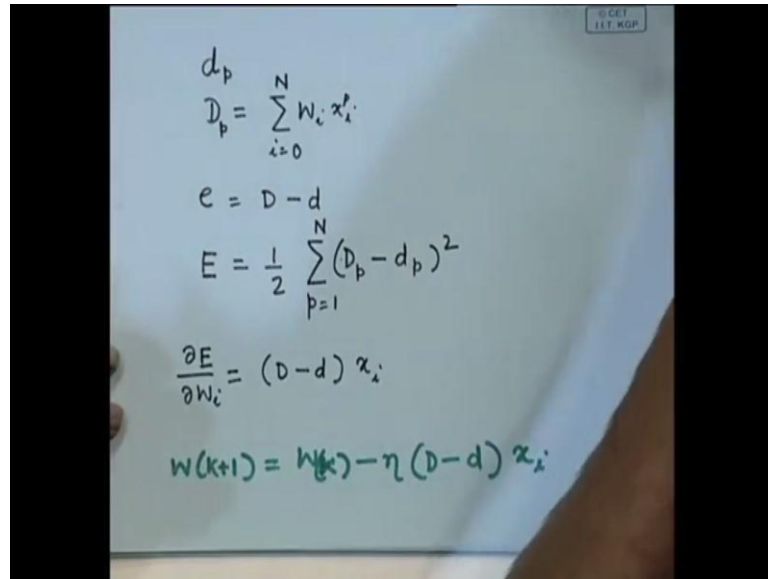 © CET
I.I.T. KGP
d_p
D_p = \sum_{i=0}^{N} W_i x_i^p
e = D - d
E = \frac{1}{2} \sum_{p=1}^{N} (D_p - d_p)^2
\frac{\partial E}{\partial W_i} = (D - d) x_i
W(K+1) = W(K) - η (D - d) x_i